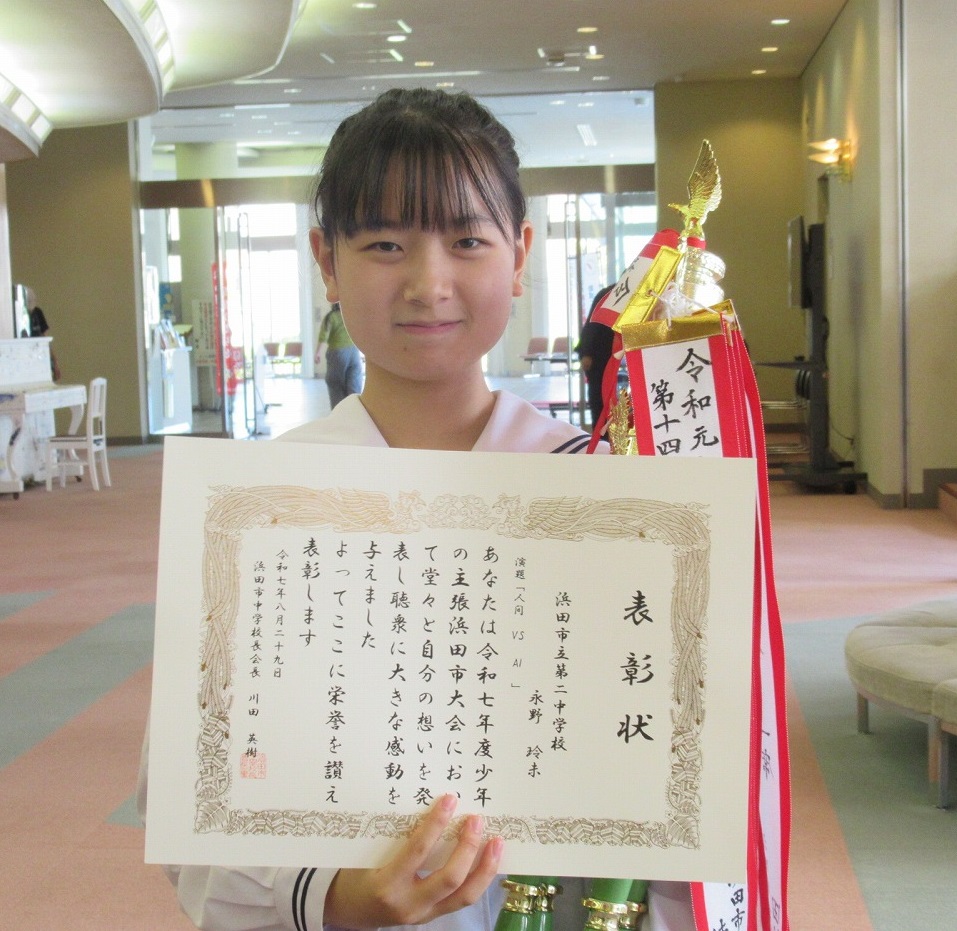 表彰状
浜田市立第二中学校
永野 玲未
演題「人間 VS AI」
あなたは令和七年度少年
の主張浜田市大会におい
て堂々と自分の想いを発
表し聴衆に大きな感動を
与えました
よってここに栄誉を讃え
表彰します
令和七年八月二十九日
浜田市中学校長会長 川田 英樹
令和元
第十四
田市